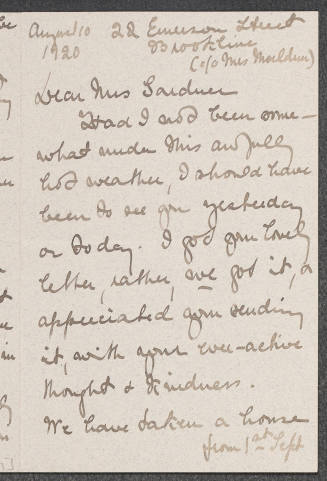 August 10 22 Emerson Street
1920 Brookline
(c/o Mrs Mouldern)
Dear Mrs Gardner
Had I not been some-
what under this awfully
hot weather, I should have
been to see you yesterday
or today. I got your lovely
letter, rather, we got it, &
appreciated your sending
it, with your ever-active
thought & kindness.
We have taken a house
from 1st Sept